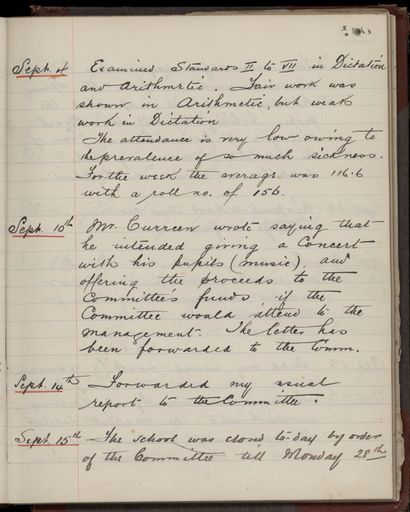 Sept. 4 Examined Standards II to VII in Dictation
and Arithmetic. Fair work was
shown in Arithmetic, but weak
work in Dictation
The attendance is very low owing to
the prevalence of so much sickness.
For the week the average was 116.6
with a roll no. of 156.
Sept. 10th Mr. Curreen wrote saying that
he intended giving a Concert
with his pupils (music), and
offering the proceeds to the
Committee's funds if the
Committee would attend to the
management. The letter has
been forwarded to the Comm.
Sept. 14th Forwarded my usual
report to the Committee.
Sept 15th The school was closed to-day by order
of the Committee till Monday 28th